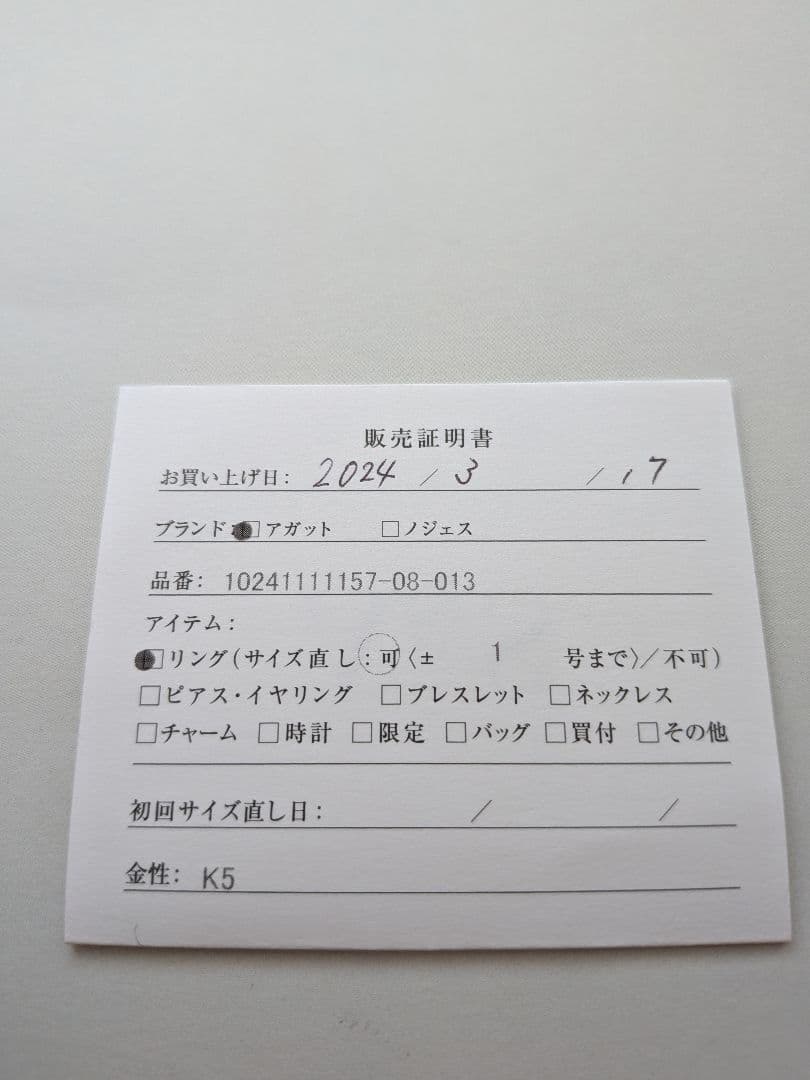 販売証明書
お買い上げ日: 2024 / 3 / 17
ブランド: アガット □ノジェス
品番: 10241111157-08-013
アイテム:
リング(サイズ直し:可〈± 1 号まで〉/不可)
□ピアス・イヤリング □ブレスレット □ネックレス
□チャーム □時計 □限定 □バッグ □買付 □その他
初回サイズ直し日: / /
金性: K5